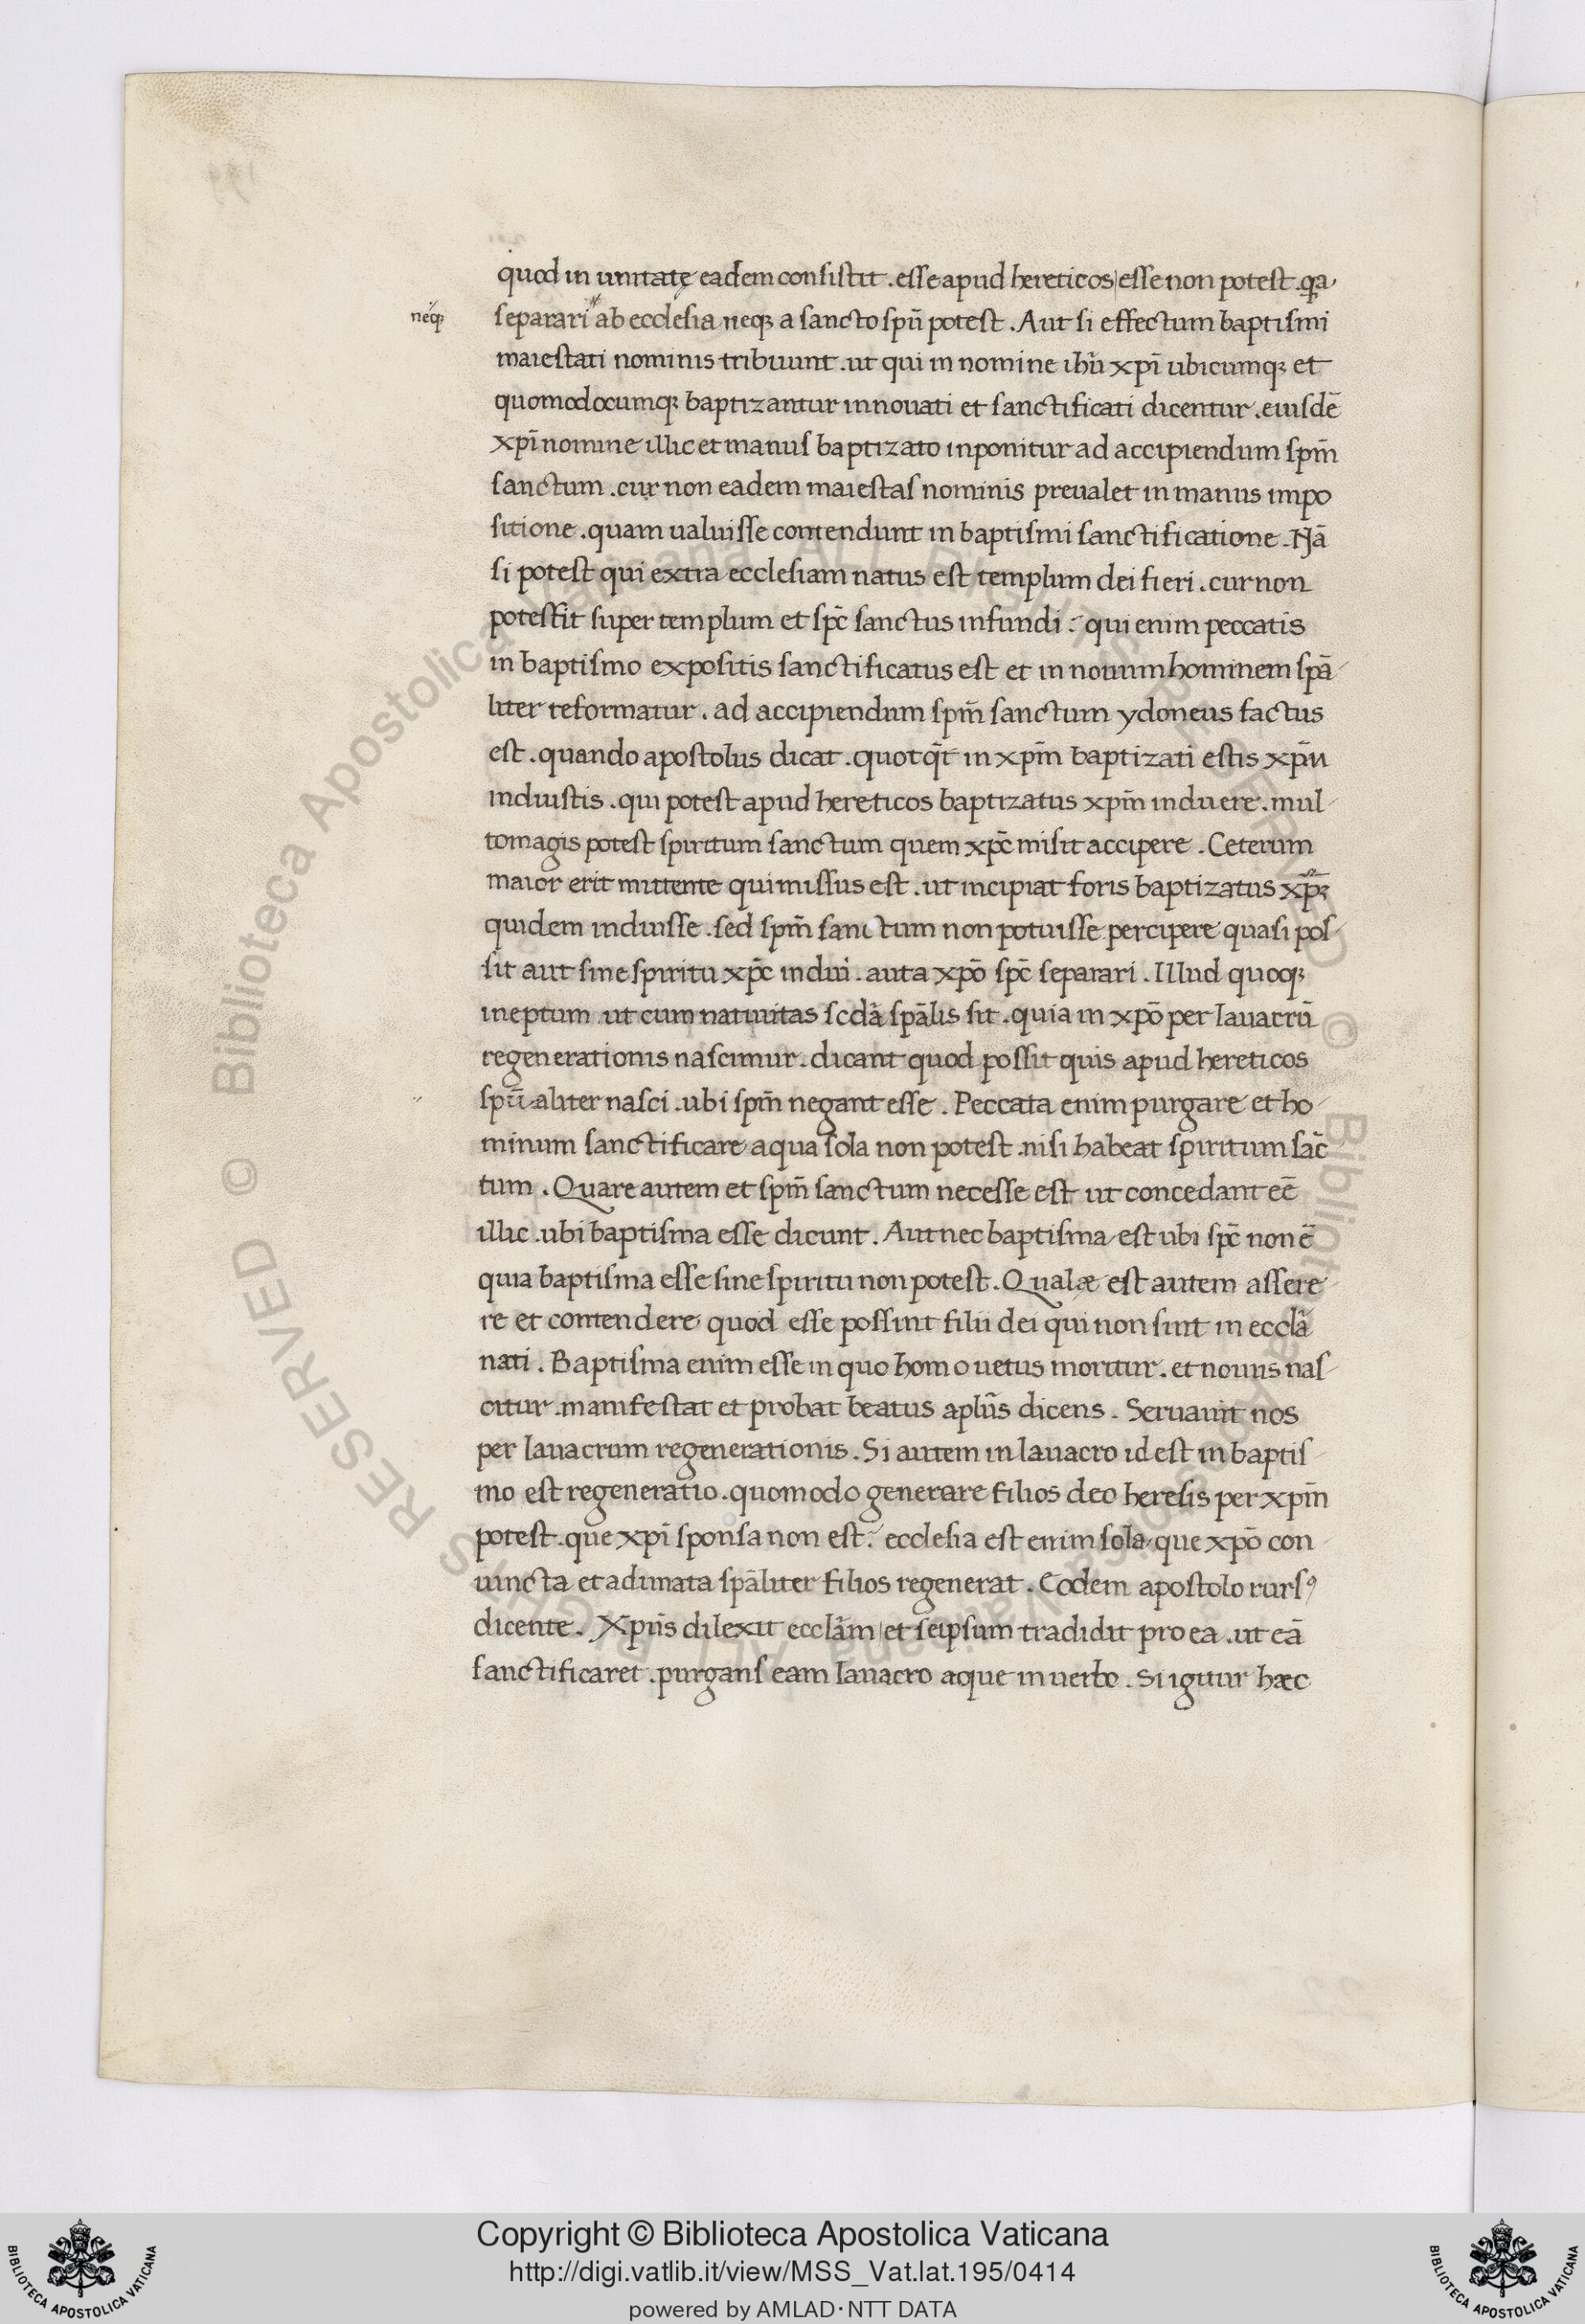 quod in unitatę eadem consistit . esse apud hereticos esse non potest . qa
neq;
separari ab ecclesia neq; a sancto spū potest . Aut si effectum baptismi
maiestati nominis tribuunt . ut qui in nomine ihū xpī ubicumq; et
quomodocumq; baptizantur innouati et sanctificati dicentur . eiusdē
xpī nomine illic et manus baptizato inponitur ad accipiendum spm̄
sanctum . cur non eadem maiestas nominis preualet in manus impo
sitione . quam ualuisse contendunt in baptismi sanctificatione . Nā
si potest qui extra ecclesiam natus est templum dei fieri . cur non
potest sit super templum et spc̄ sanctus infundi : qui enim peccatis
in baptismo expositis sanctificatus est et in nouum hominem spā
liter reformatur . ad accipiendum spm̄ sanctum ydoneus factus
est . quando apostolus dicat . quotq̄t in xpm̄ baptizati estis xpm̄
induistis . qui potest apud hereticos baptizatus xpm̄ induere . mul
tomagis potest spiritum sanctum quem xpc̄ misit accipere . Ceterum
maior erit mittente qui missus est . ut incipiat foris baptizatus
quidem induisse . sed spm̄ sanctum non potuisse percipere quasi pos
sit aut sine spiritu xpc̄ indui . aut a xpō spc̄ separari . Illud quoq;
ineptum ut cum natiuitas scdā spālis sit . quia in xpō per lauacrū
regenerationis nascimur . dicant quod possit quis apud hereticos
spū aliter nasci . ubi spm̄ negant esse . Peccata enim purgare et ho
minum sanctificare aqua sola non potest . nisi habeat spiritum sāc
tum . Quare autem et spm̄ sanctum necesse est ut concedant eē
illic . ubi baptisma esse dicunt . Aut nec baptisma est ubi spc̄ non ē
quia baptisma esse sine spiritu non potest . Qualæ est autem assere
re et contendere quod esse possint filii dei qui non sint in ecclā
nati . Baptisma enim esse in quo homo uetus moritur . et nouus nas
citur . manifestat et probat beatus aplūs dicens . Seruauit nos
per lauacrum regenerationis . Si autem in lauacro id est in baptis
mo est regeneratio . quomodo generare filios deo heresis per xpm̄
potest . que xpī sponsa non est : ecclesia est enim sola que xpō con
uincta et adunata spāliter filios regenerat . Eodem apostolo rursꝰ
dicente . Xpūs dilexit ecclām et seipsum tradidit pro ea . ut eā
sanctificaret . purgans eam lauacro aque in uerbo . Si igitur hæc
Biblioteca Apostolica Vaticana ALL RIGHTS RESERVED ©
Biblioteca Apostolica Vaticana ALL RIGHTS RESERVED ©
Copyright © Biblioteca Apostolica Vaticana
http://digi.vatlib.it/view/MSS_Vat.lat.195/0414
powered by AMLAD·NTT DATA
BIBLIOTECA APOSTOLICA VATICANA
BIBLIOTECA APOSTOLICA VATICANA